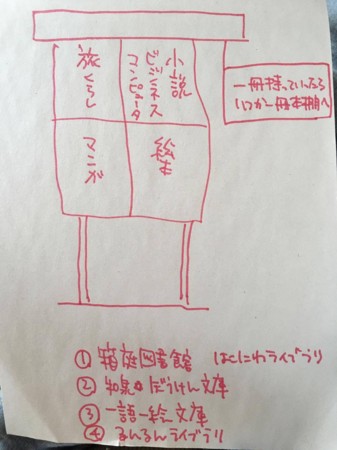 小説
ビジネス
コンピュータ
旅くらし
絵本
マンガ
一冊持っていったら
いつか一冊本棚へ
① 箱庭図書館 はこにわライブラリ
② 和泉 ぼうけん文庫
③ 一語一絵文庫
④ るんるんライブラリ